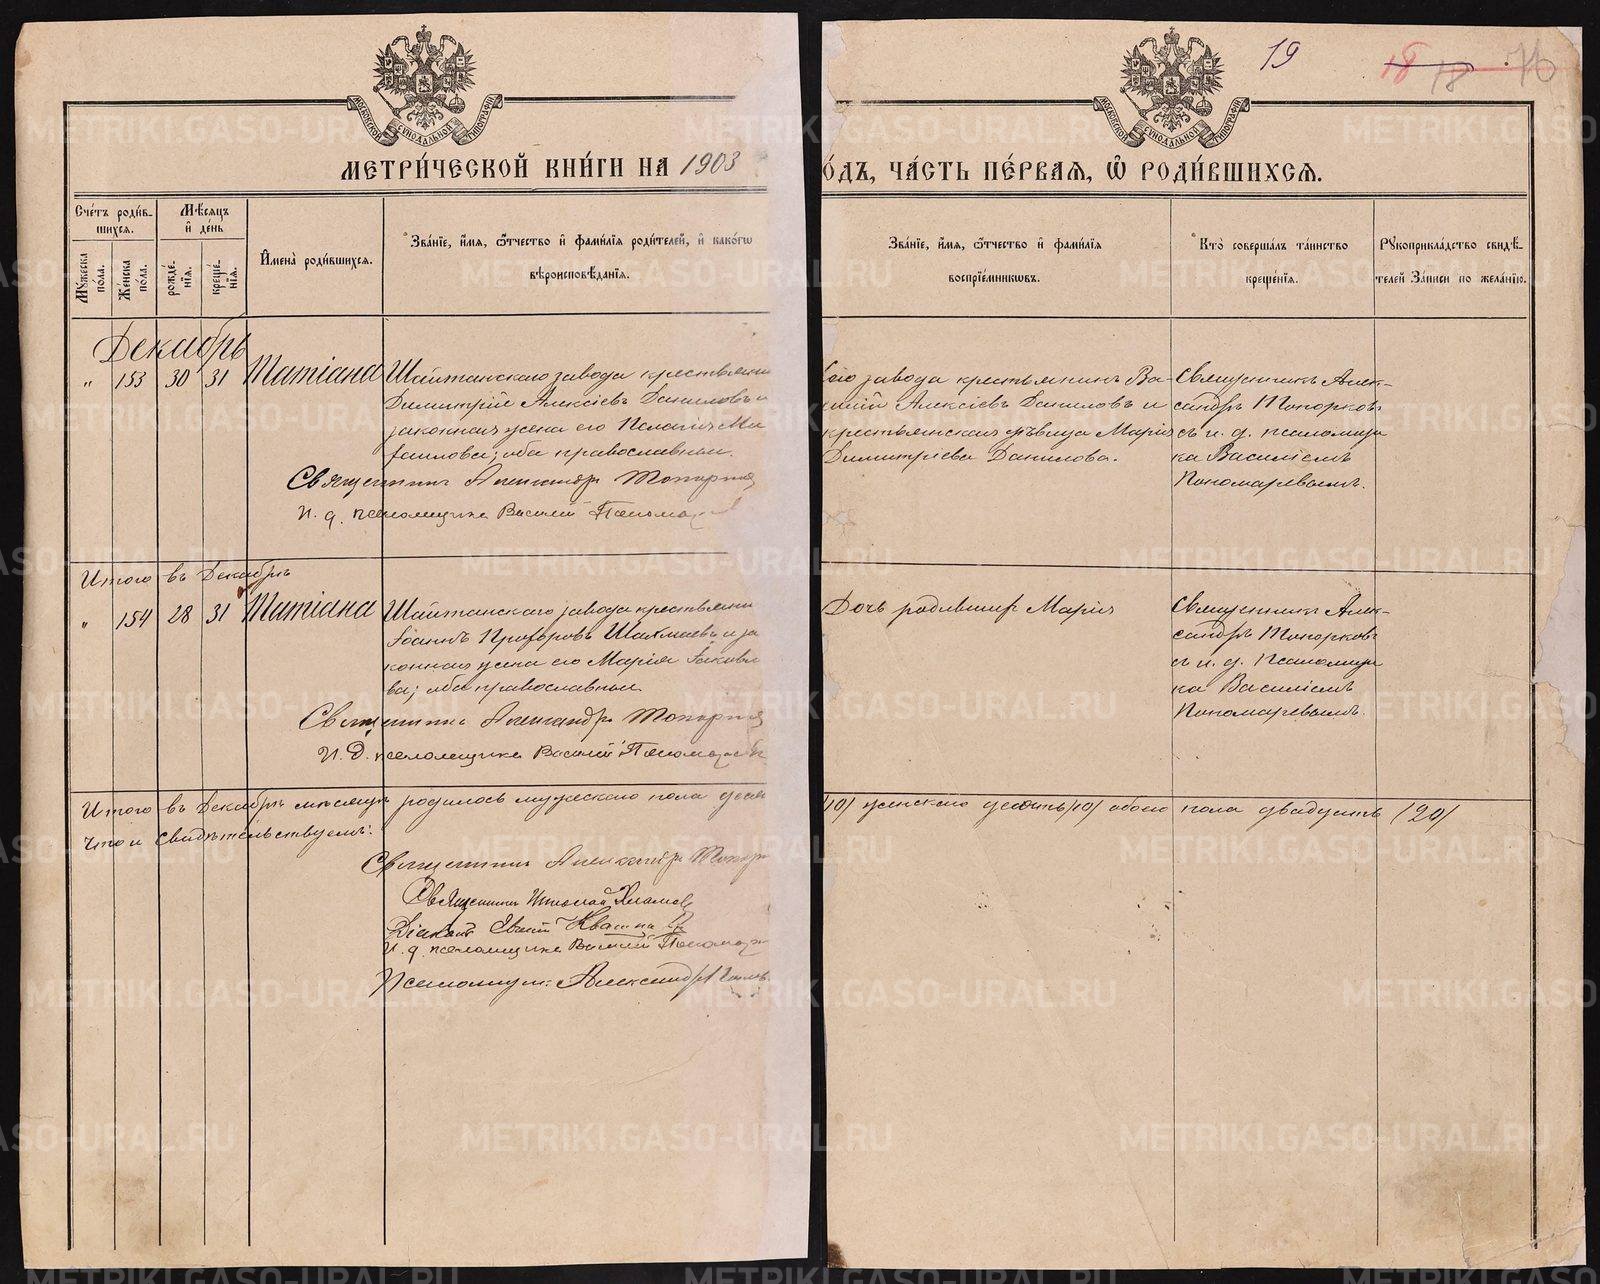 19
18
18
76
МОСКОВСКОЙ СѴНОДАЛЬНОЙ ТИПОГРАФІИ
МОСКОВСКОЙ СѴНОДАЛЬНОЙ ТИПОГРАФІИ
МЕТРИ́ЧЕСКОЙ КНИ́ГИ НА 1903
О́ДЪ, ЧА́СТЬ ПЕ́РВАЯ, Ѡ҆ РОДИ́ВШИХСЯ.
Сче́тъ роди́в-
шихся.
Мѣ́сяцъ
и҆ де́нь
Мꙋ́жеска
по́ла.
Же́нска
по́ла.
рожде́-
нїя.
креще́-
нїя.
И҆мена̀ роди́вшихся.
Зва́нїе, и҆́мя, ѻ҆́тчество и҆ фами́лїя роди́телей, и҆ како́гѡ
вѣроисповѣ́данїя.
Зва́нїе, и҆́мя, ѻ҆́тчество и҆ фами́лїя
воспрїе́мникѡвъ.
Кто̀ соверша́лъ та́инство
креще́нїя.
Рꙋкоприкла́дство свидѣ́-
телей За́писи по жела́нїю.
Декабрь
„ 153 30 31 Татіана
Шайтанскаго завода крестьянин
Димитрій Алексіевъ Даниловъ и
законная жена его Пелагія Ми
хаилова; оба православные.
Священникъ Александръ Топорков
И. д. псаломщика Василій Пономарев
аго завода крестьянинъ Ва-
илій Алексіевъ Даниловъ и
крестьянская дѣвица Марія
Димитріева Данилова.
Священникъ Алек-
сандръ Топорковъ
съ и. д. псаломщи
ка Василіемъ
Пономаревымъ.
Итого въ Декабрь
„ 154 28 31 Татіана
Шайтанскаго завода крестьянин
Іоаннъ Прохоровъ Шахмаевъ и за
конная жена его Марія Іаковле
ва; оба православные.
Священникъ Александръ Топорков
И. д. псаломщика Василій Пономарев
Дочь родившир Марія
Священникъ Алек-
сандръ Топорковъ
съ и. д. псаломщи
ка Василіемъ
Пономаревымъ.
Итого въ Декабрѣ мѣсяцѣ родилось мужескаго пола деся
/10/ женскаго десять /10/ обоего пола двадцать /20/
Что и свидѣтельствуемъ:
Священникъ Александръ Топорк
Священникъ Николай
Діаконъ Евгеній
И. д. псаломщика Василій Пономар
Псаломщикъ Александръ
METRIKI.GASO-URAL.RU